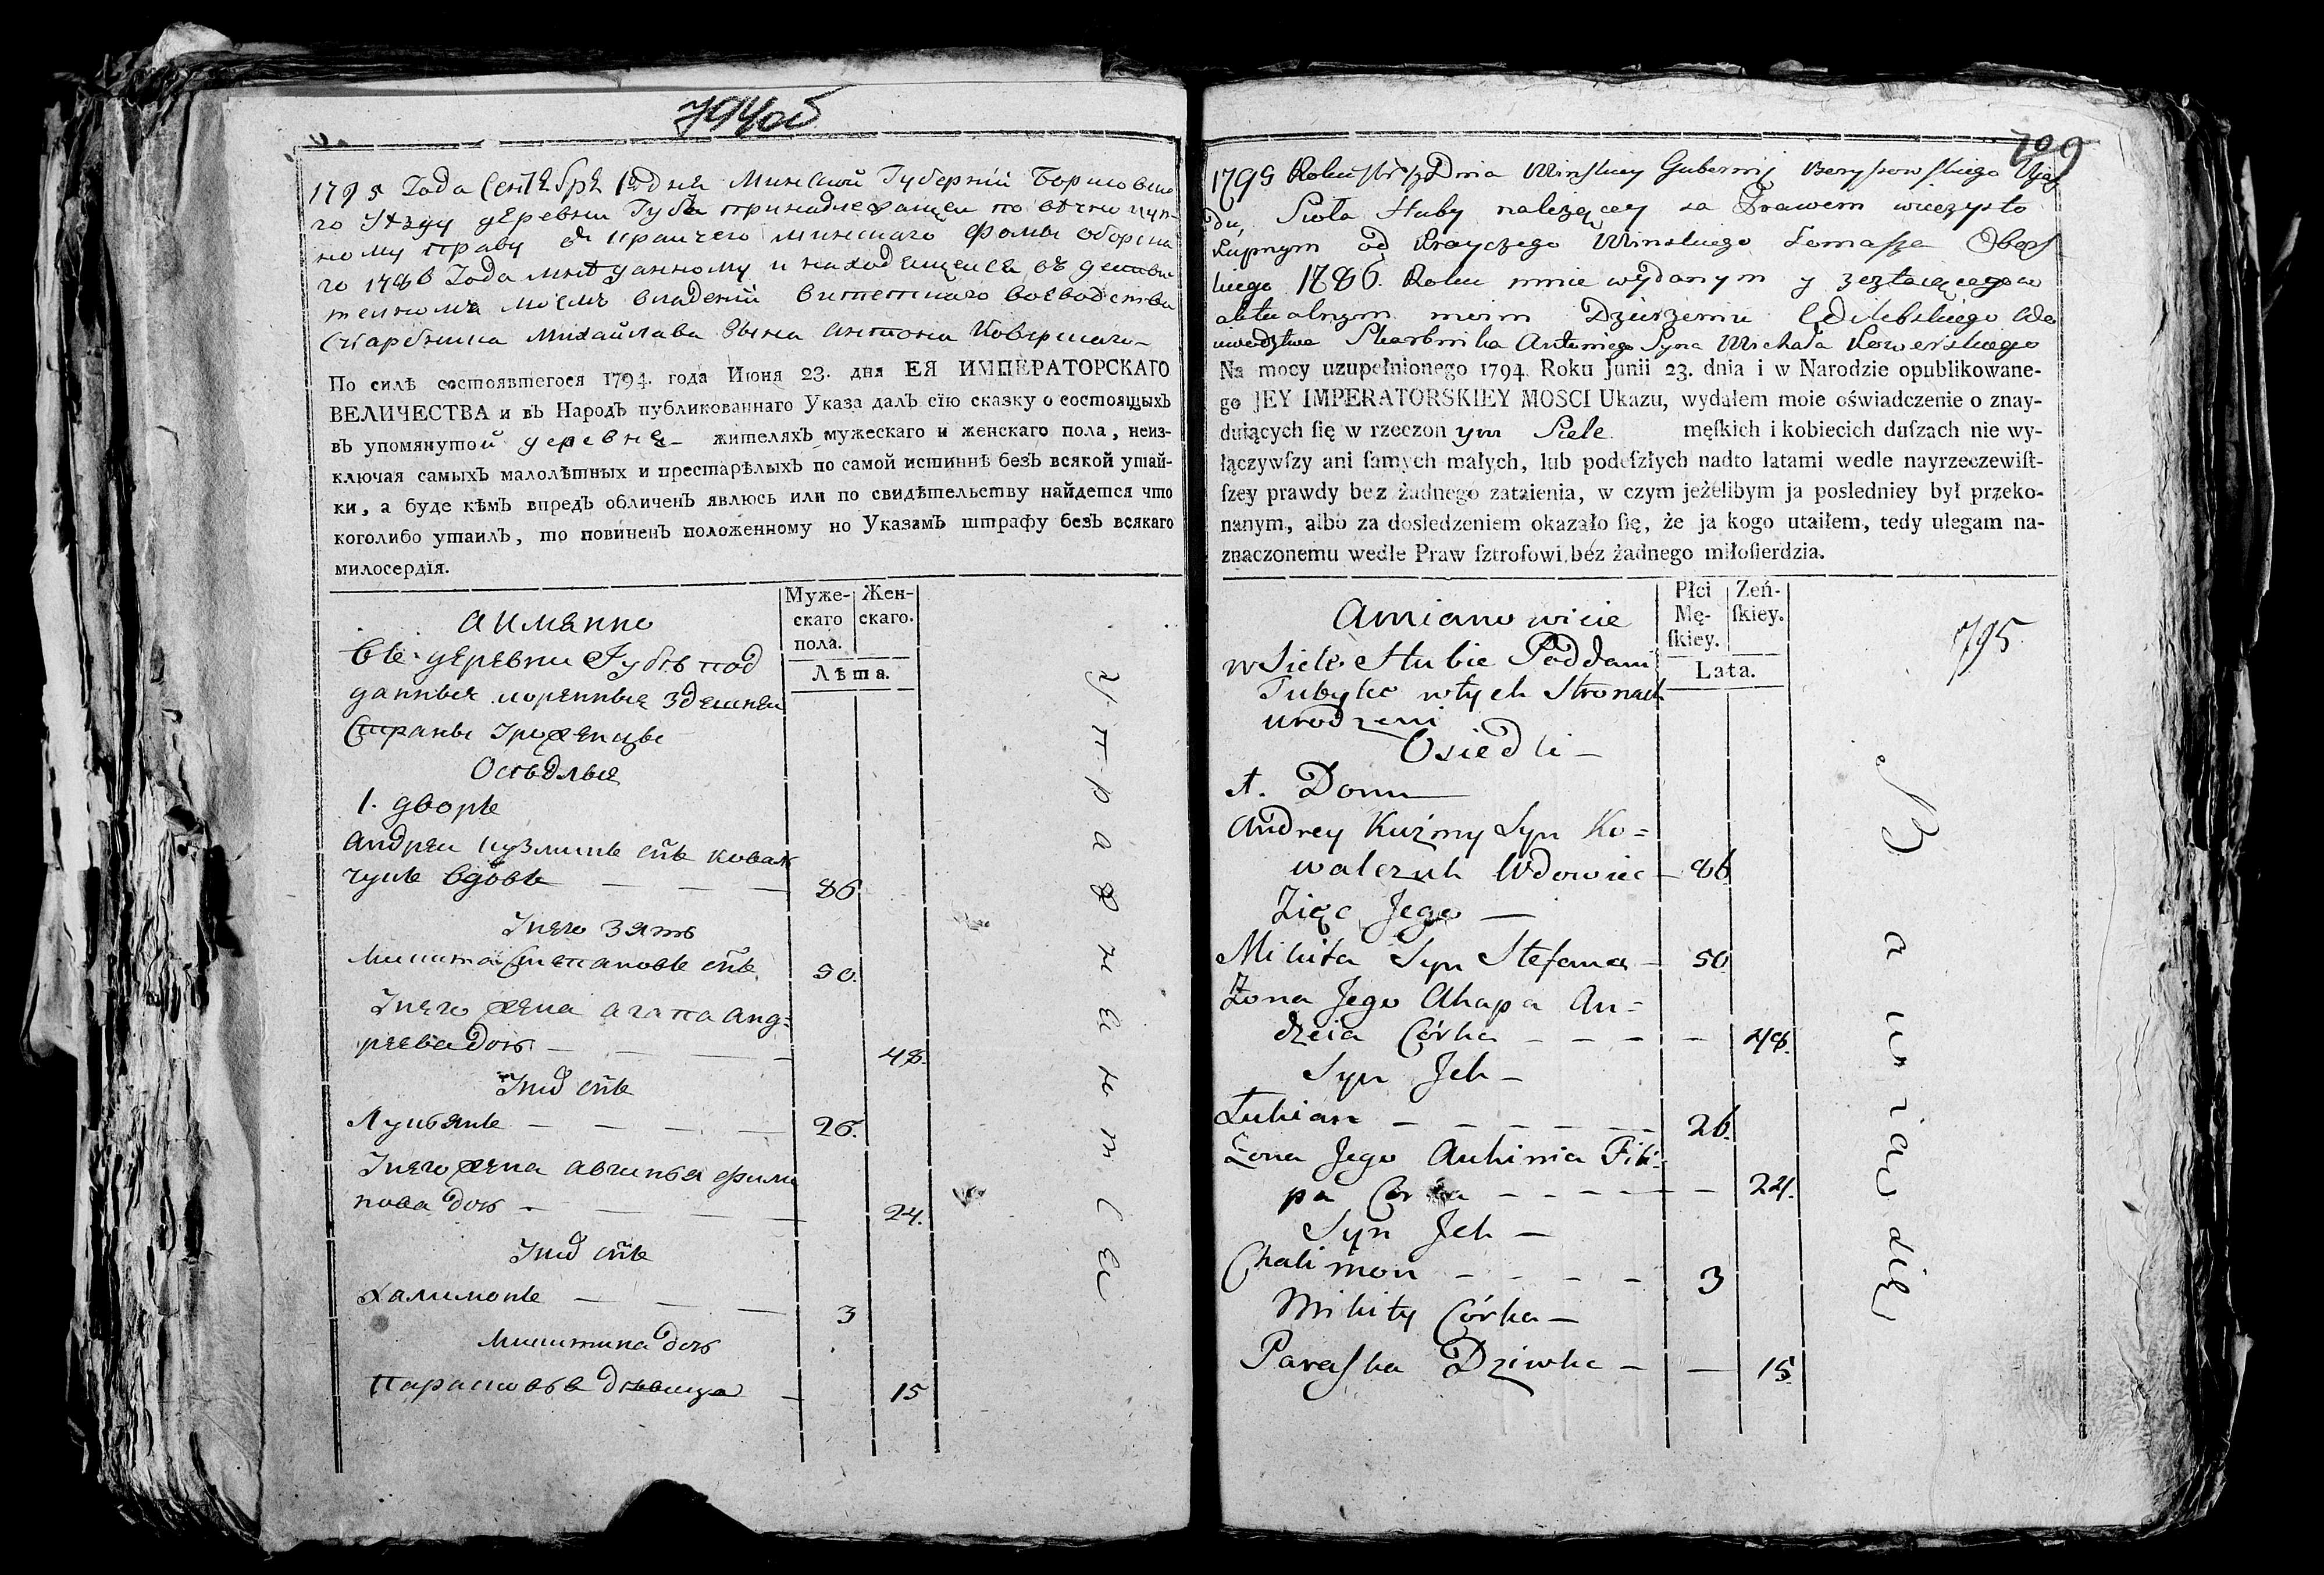 794об
1795 Года Сентября дня Минской Губернiи Борисовска
го Уезду деревни Губы принадлежащей по вечно куп-
ному праву от Крайчего минскаго Фомы Оборска
го 1786 Года мне данному и находящейся въ действи
тельномъ моемъ владенiи Витепскаго воеводства
Скарбника Михайлава сына Антона Коверскаго
По силѣ состоявшегося 1794. года Июня 23. дня ЕЯ ИМПЕРАТОРСКАГО
ВЕЛИЧЕСТВА и въ Народъ публикованнаго Указа далъ сїю сказку о состоящыхъ
въ упомянутой деревне жителяхъ мужескаго и женскаго пола, неиз-
ключая самыхъ малолѣтныхъ и престарѣлыхъ по самой истиннѣ безъ всякой утай-
ки, а буде кѣмъ впредъ обличенъ явлюсь или по свидѣтельству найдется что
коголибо утаилъ, то повиненъ положенному по Указамъ штрафу безъ всякаго
милосердїя.
Муже-
скаго
пола.
Жен-
скаго.
Лѣта.
А имянно
Въ деревни Губѣ под
данныя коренныя здешнеи
Страны уроженцы
Осѣдлыя
1. дворъ
Андреи Кузминъ снъ Коваль
чукъ вдовъ 86
У него зять
Микита Степановъ снъ 50.
У него жена Агапа Анд-
реева дочь 48.
У них снъ
Лукьянъ 26.
У него жена Авгинья Фили
пова дочь 24.
У них снъ
Халимонъ 3
Микитина дочь
Парасковья дѣвица 15
Управненться
709
1795 Roku Dnia Minskiey Gubernij Borysowskiego Ujaz
du, Sioła Huby należącey za Prawem wieczysto
kupnym od Krayczego Minskiego Tomasza Obors
kiego 1786. Roku mnie wydanym y zostaiącego w
aktualnym moim Dzierżeniu Witebskiego Wo
iewodztwa Skarbnika Antoniego Syna Michała Kowerskiego
Na mocy uzupełnionego 1794. Roku Junii 23. dnia i w Narodzie opublikowane-
go JEY IMPERATORSKIEY MOSCI Ukazu, wydałem moie oświadczenie o znay-
duiących ſię w rzeczonym Siele męſkich i kobiecich duſzach nie wy-
łączywſzy ani ſamych małych, lub podeſzłych nadto latami wedle nayrzeczewiſt-
ſzey prawdy bez żadnego zataienia, w czym jeżelibym ja posledniey był przeko-
nanym, albo za dosledzeniem okazało ſię, że ja kogo utaiłem, tedy ulegam na-
znaczonemu wedle Praw ſztrofowi bez żadnego miłoſierdzia.
Płci
Mę-
ſkiey.
Zeń-
ſkiey.
Lata.
795
A mianowicie
w Siele Hubie Poddani
Tubylce w tych Stronach
urodzeni
Osiedli
1. Dom
Andrey Kuźmy Syn Ko=
walczuk Wdowiec 86
Zięc Jego
Mikita Syn Stefana 50
Żona Jego Ahapa An=
dzeia Córka 48.
Syn Jch
Łukian 26
Żona Jego Auhinia Fili-
pa Corka 24.
Syn Jch
Chalimon 3
Mikity Córka
Paraska Dziwka 15.